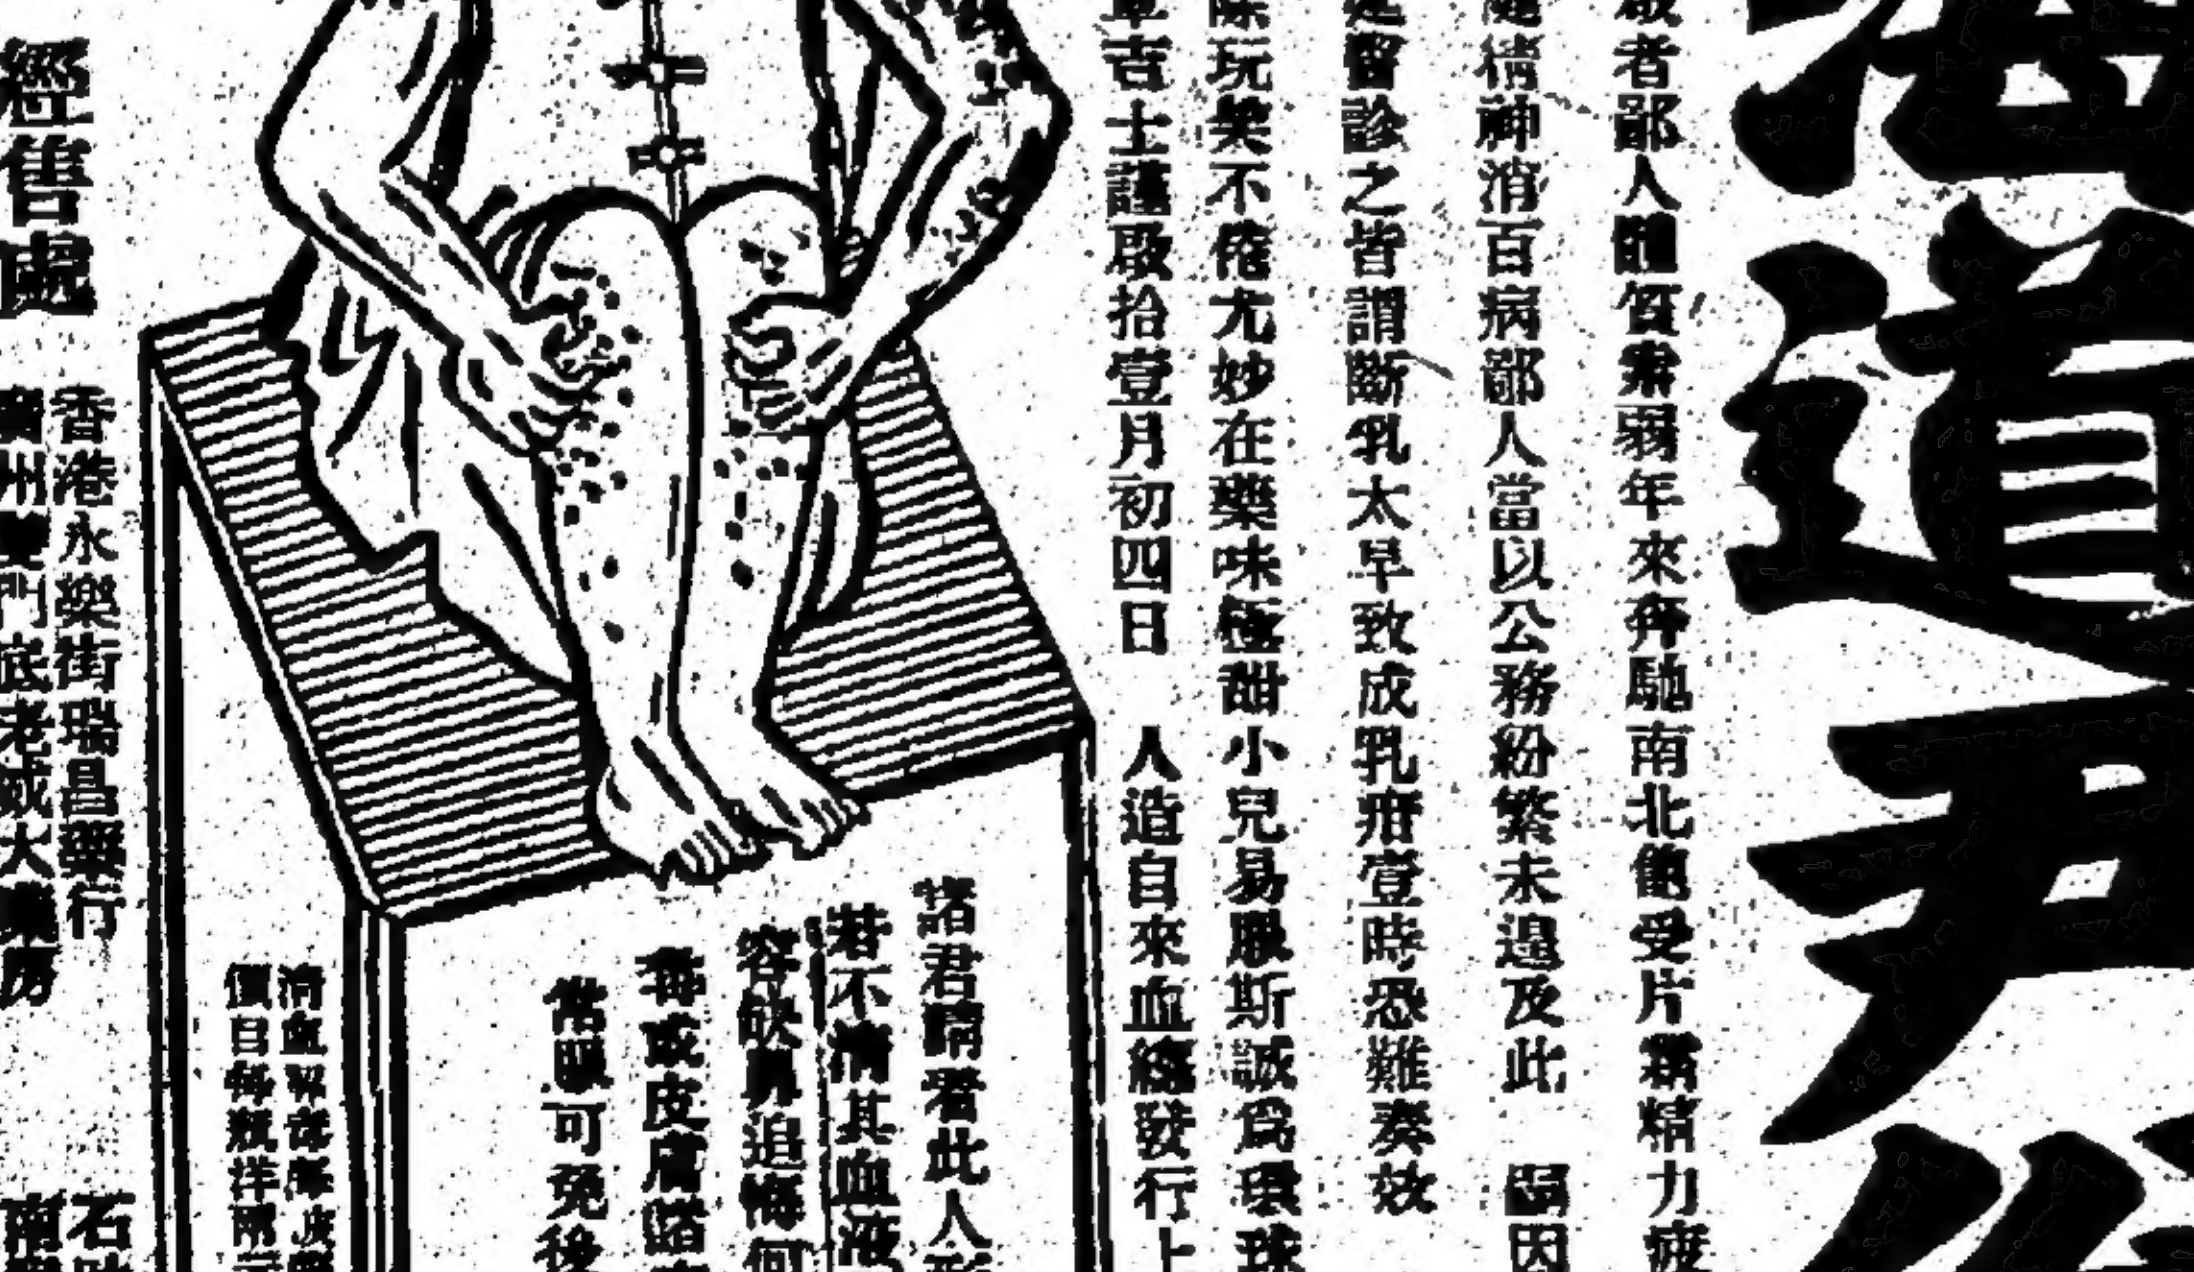 道尹
者鄙人體質素弱年來奔馳南北飽受風霜精力疲
精神消百病鄙人當以公務紛繁未遑及此 因
留診之皆謂斷乳太早致成乳疳壹時恐難奏效
玩笑不倦尤妙在藥味極甜小兒易服斯誠爲環球
吉士謹啟拾壹月初四日 人造自來血總發行上
諸君請看此人形
若不清其血液
容缺 追悔何
再成皮膚諸
常服可免後
清血解毒
價目每瓶洋兩元
經售處
香港永樂街瑞昌藥行
廣州雙門底老威大藥房
石
南